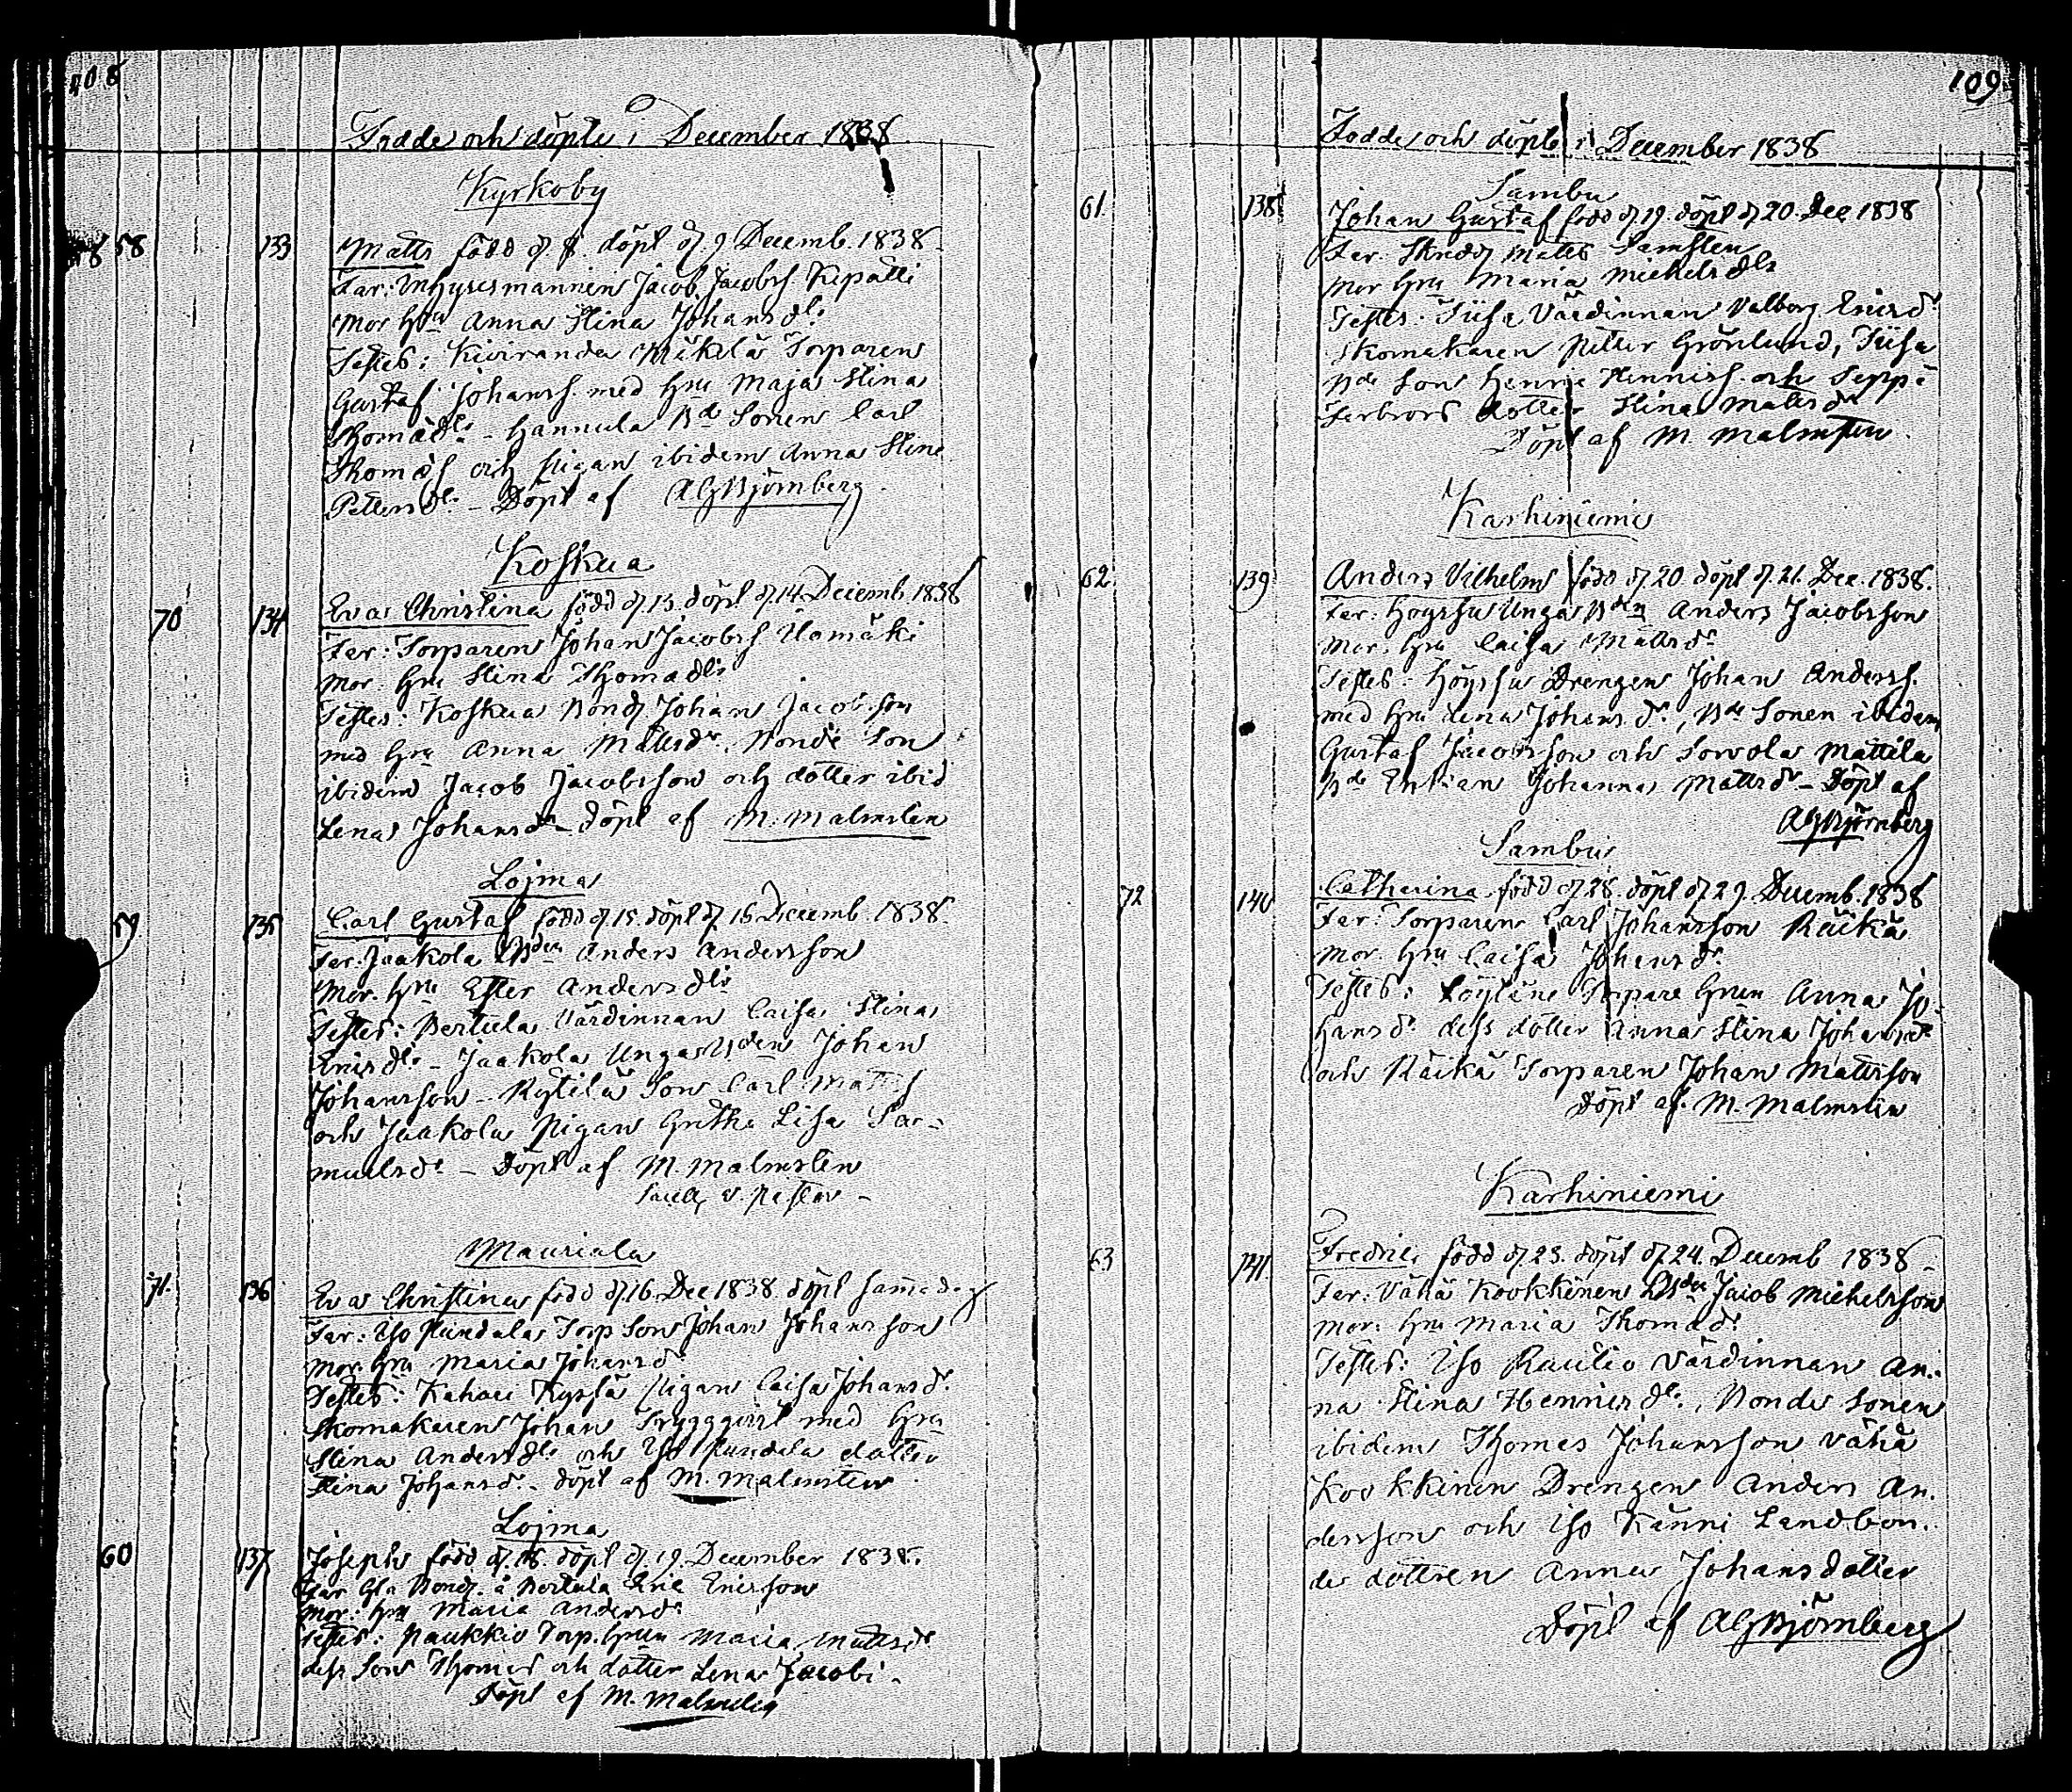 108
Födde och döpte i December 1838
Kyrkoby
58 133 Matts född d. 8. döpt d. 9 Decemb. 1838
Far: Inhysesmannen Jacob Jacobss Kepatti
Mor Hru Anna Stina Johansdr
Testes: Kiviranda Mäkelä Torparen
Gustaf Johanss. med hru Maja Stina
Thomædr - Hannula Bde Sonen Carl
Thomæs och Pigan ibidem Anna Stina
Pettersdr - Döpt af AGBjörnberg
Koskua
70 134 Eva Christina född d. 13. döpt d. 14 Decemb. 1838
Far: Torparen Johan Jacobss Ylomäki
Mor: hru Stina Thomædr
Testes: Koskua Bond Johan Jacobsson
med hru Anna Mattsdr. Bonde Son
ibidem Jacob Jacobsson och dotter ibid
Lena Johansdr - döpt af M. Malmsten
Lojma
59 135 Carl Gustaf född d. 15. döpt d. 16 Decemb. 1838.
Far: Jaakola Bden Anders Andersson
Mor. hru Ester Andersdr
Testes: Bertula Värdinnan Caisa Stina
Ericsdr - Jaakola Unga Bden Johan
Johansson - Kytilä Son Carl Mattss
och Jaakola Pigan Gretha Lisa Sa-
muelsdr - Döpt af M. Malmsten
Sacell. v. Pastor -
Mauriala
71. 136 Eva Christina född d. 16. Dec 1838. döpt samma dag
Far: Iso Pundala Torp Son Johan Johansson
Mor. hru Maria Johansd
Testes: Kahari Pigan Caisa Johansdr
Skomakaren Johan Tryggqvist med hru
Stina Andersdr och Iso Pundala dotter
Stina Johansdr - döpt af M. Malmsten
Lojma
60 137 Joseph född d. 18. döpt d. 19. December 1838.
Far Gla Bond. å Bertula Eric Ericsson
Mor: hru Maria Andersdr
Testes: Paukkio Torp. hrun Maria Mattsdr
dess Son Thomas och dotter Lena Jacobi.
Döpt af M. Malmsten
109
Födde och döpte i December 1838
Sambu
61. 138 Johan Gustaf född d. 19. döpt d. 20. Dec 1838
Far: Skredd Matts Samsten
Mor hru Maria Michelsdr
Testes: Tiisa Värdinnan Valborg Ericsdr
Skomakaren Petter Grönlund, Tiisa
Bde Son Henric Henricss. och Seppä
Farbrors dotter Stina Mattsdr
Döpt af M. Malmsten
Karhiniemi
62 139 Anders Vilhelm född d. 20 döpt d. 21. Dec. 1838.
Far: Höyssu Unga Bden Anders Jacobsson
Mor. hru Caisa Mattsdr
Testes: Höyssu Drengen Johan Anderss.
med hru Lena Johansdr, Bde Sonen ibidem
Gustaf Jacobsson och Sorvola Mattila
Bde Enkan Johanna Mattsdr - Döpt af
AGBjörnberg
Sambu
72 140 Catharina född d. 28. döpt d. 29. Decemb. 1838
Far: Torparen Carl Johansson Räikä
Mor. hru Caisa Johansdr
Testes: Löyläne Torpare hrun Anna Jo-
hansdr dess dotter Anna Stina Johansdr
och Räikä Torparen Johan Mattsson
Döpt af M. Malmsten
Karhiniemi
63 141 Fredric född d. 23. döpt d. 24. Decemb 1838
Far: Vähä Kookkinen Bden Jacob Michelsson
Mor: hru Maria Thomædr
Testes: Iso Rautio Värdinnan An-
na Stina Henricsdr, Bonde Sonen
ibidem Thomas Johansson Vähä
Kookkinen Drengen Anders An-
dersson och Iso Känni Landbon-
de dottren Anna Johansdotter
Döpt af AGBjörnberg